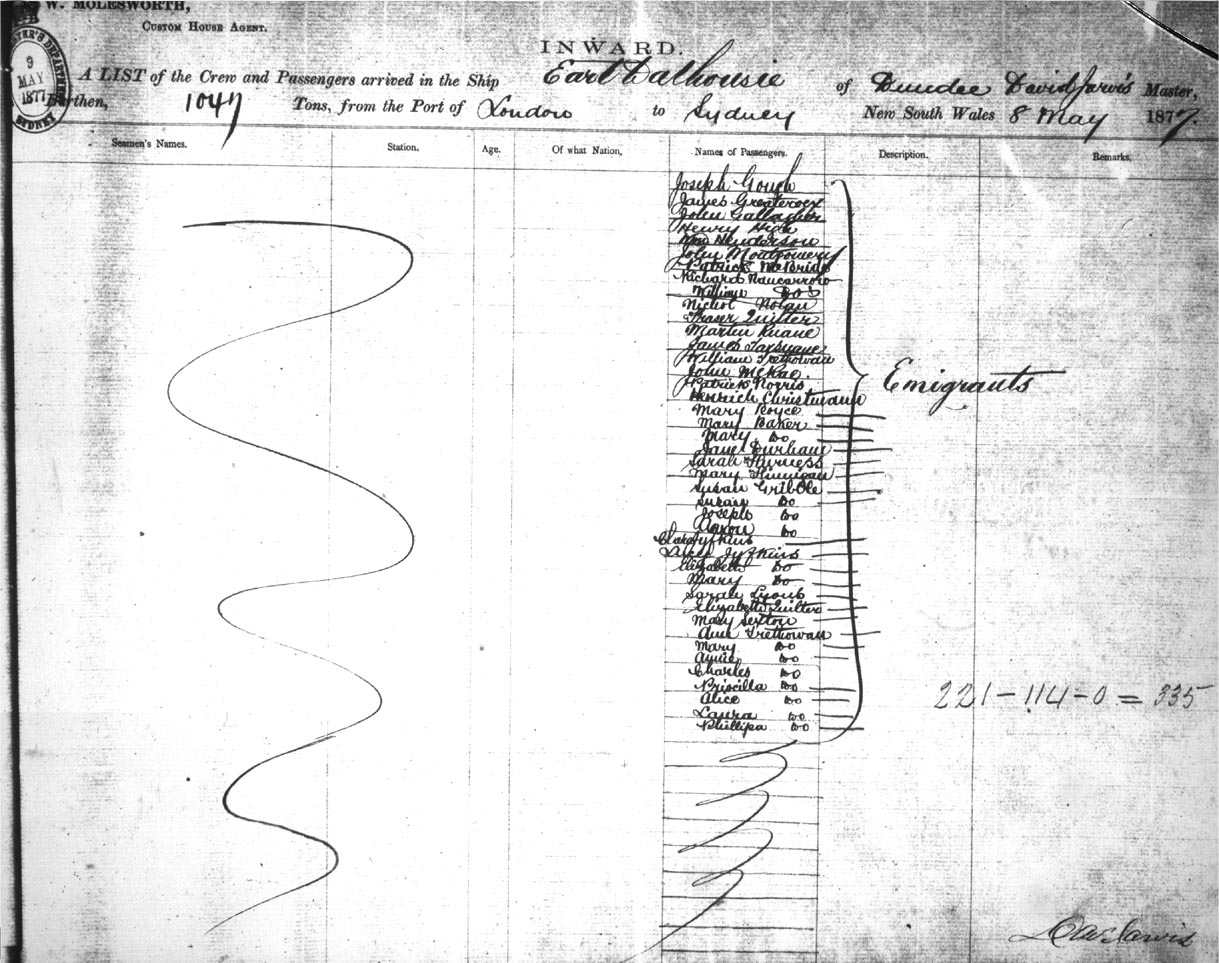 W. MOLESWORTH,
CUSTOM HOUSE AGENT.
9
MAY
1877
SYDNEY
INWARD.
A LIST of the Crew and Passengers arrived in the Ship Earl Dalhousie of Dundee David Jarvis Master,
Burthen, 1047 Tons, from the Port of London to Sydney New South Wales 8 May 1877.
Seamen's Names. Station. Age. Of what Nation, Names of Passengers. Description. Remarks.
Joseph Gough
James Greatorex
John Gallagher
Henry High
Wm Henderson
John Montgomery
Patrick McBride
Richard Nancarrow
William Do
Nichol Nolan
Fraser Quilter
Martin Ruane
James
William Trethowan
John McRae.
Patrick Norris
Heinrich Christmann
Emigrants
Mary Boyce
Mary Baker
Mary Do
Jane Durham
Sarah Furness
Mary Finnigan
Susan Gribble
Susan Do
Joseph Do
Do
Clara Jyfkins
Jyfkins
Elizabeth Do
Mary Do
Sarah Lyons
Elizabeth Quilter
Mary Sexton
Ann Trethowan
Mary Do
Annie Do
Charles Do
Priscilla Do
Alice Do
Laura Do
Phillipa Do
221 - 114 - 0 = 335
Jarvis